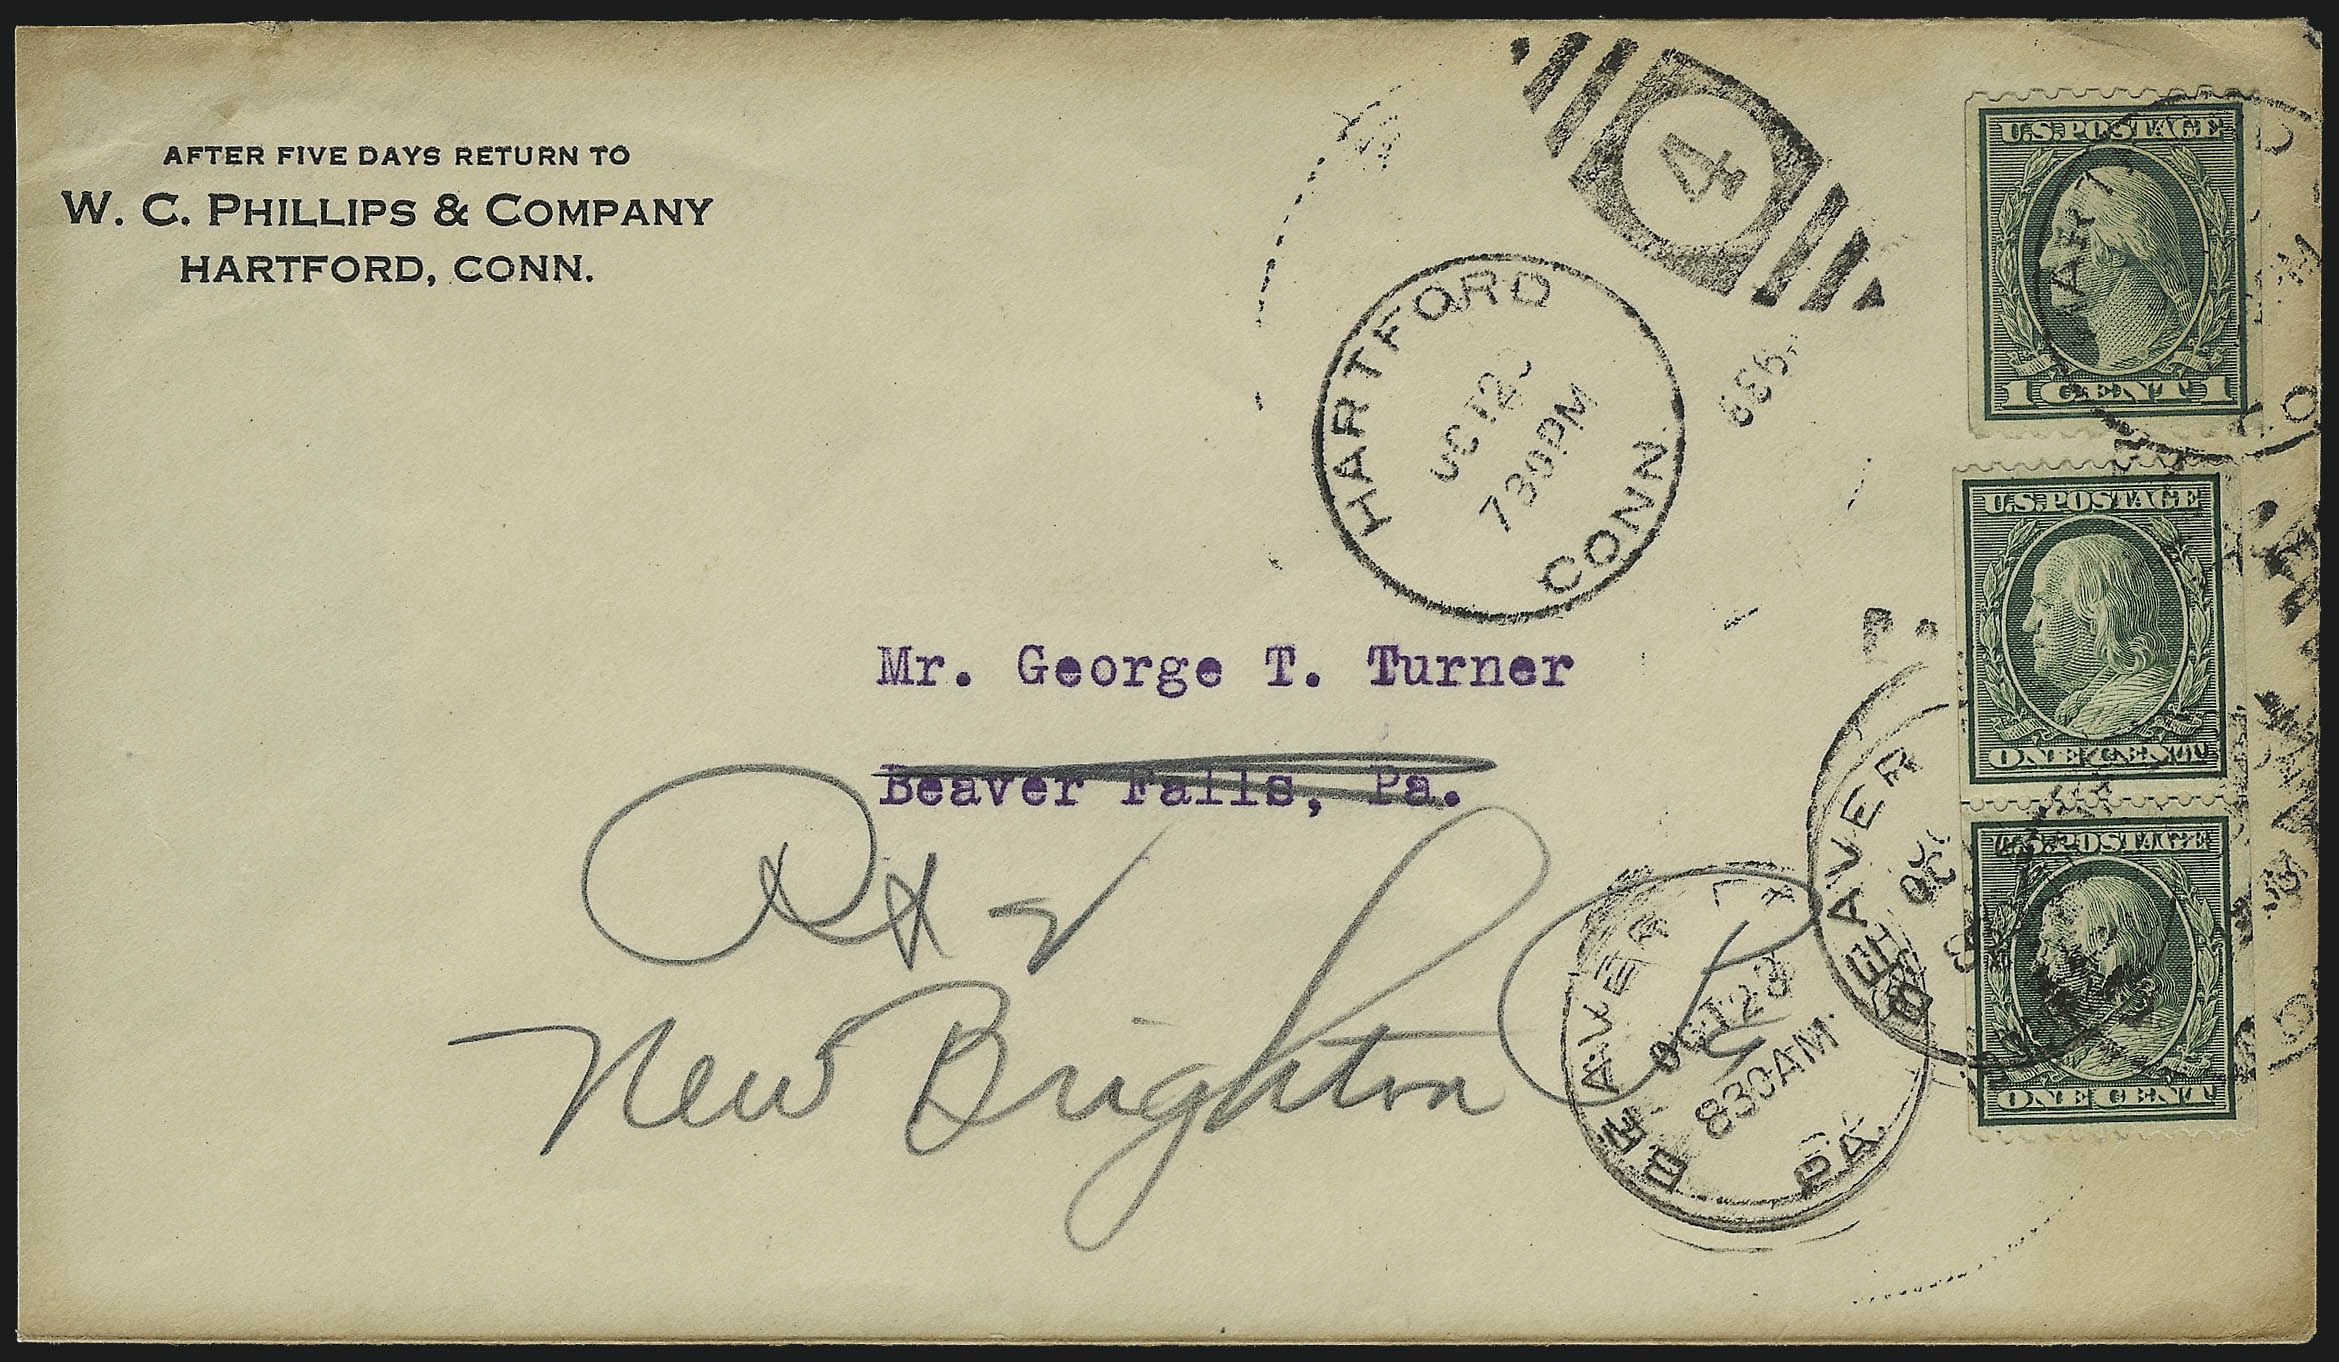 AFTER FIVE DAYS RETURN TO
W. C. PHILLIPS & COMPANY
HARTFORD, CONN.
4
HARTFORD
CONN.
730PM
U.S. POSTAGE
1 CENT 1
U.S. POSTAGE
ONE CENT
U.S. POSTAGE
ONE CENT
Mr. George T. Turner
Beaver Falls, Pa.
New Brighton
Pa
BEAVER
BEAVER
OCT 28
830AM
PA.